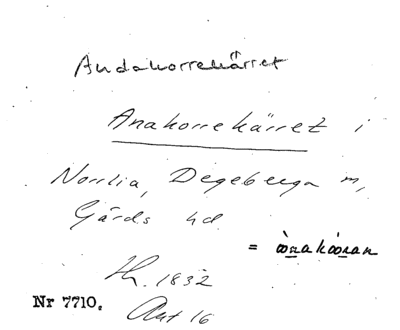 Andakorrekärret
Anakorrekärret i
Norrlia, Degeberga m,
Gärds hd
=
Th. 1832
Nr 7710.
Akt 16